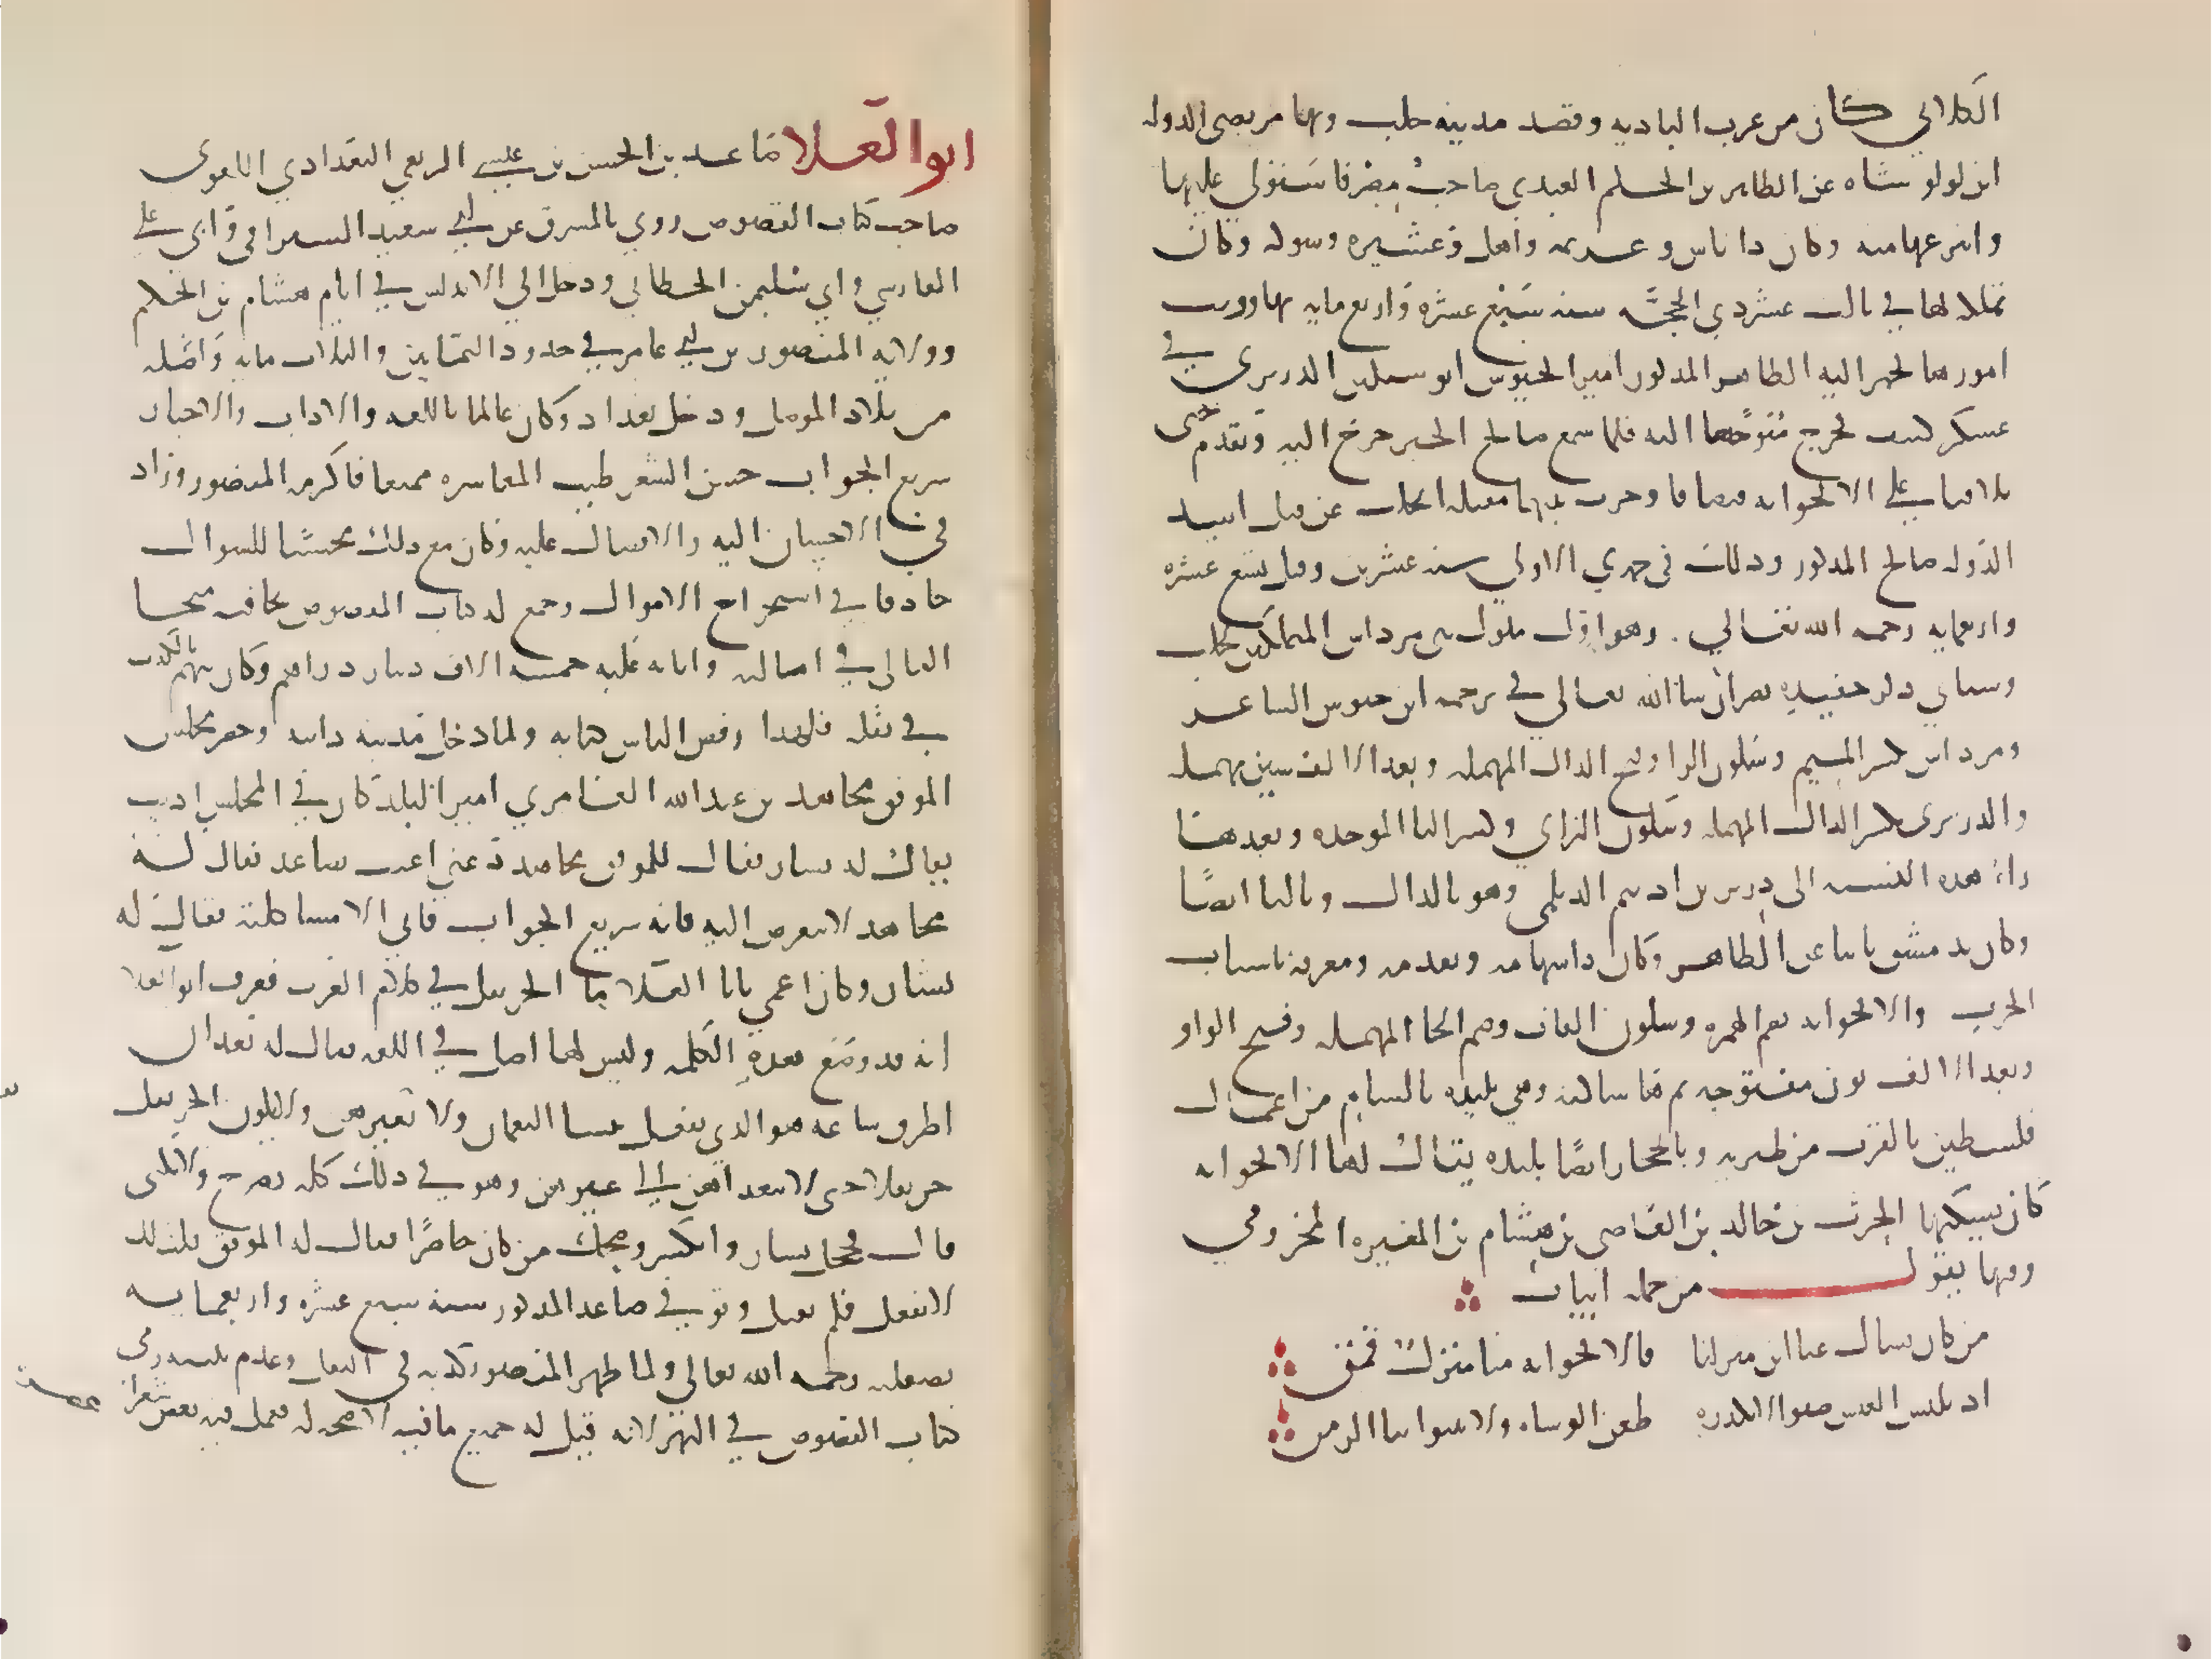 الكلابي كان من عرب الباديه وقصد مدينه حلب وبها مرتضى الدوله
ابن لولو نيابه عن الظاهر بن الحاكم العبيدي صاحب مصر فاستولي عليها
وانتزعها منه وكان ذا باس وعزيمه واهل وعشيره وشوكه وكان
تملكه لها في ثالث عشر ذي الحجه سنه سبع عشره واربع مايه بها ورتب
امورها فجهز اليه الظاهر المذكور امير الجيوش انوشتكين الدزبري في
عسكر كثيف فخرج متوجها اليه فلما سمع صالح الخبر خرج اليه وتقدم حتى
تلاقيا على الاقحوانه فتصافا وجرت بينهما مقتله انجلت عن قتل اسد
الدوله صالح المذكور وذلك في جمدي الاولي سنه عشرين وقيل تسع عشره
واربعمايه رحمه الله تعالي . وهو اول ملوك بني مرداس المتملكين بحلب
وسياتي ذكر حفيده نصر ان شا الله تعالي في ترجمه ابن حيوس الشاعر
ومرداس بكسر الميم وسكون الرا وفتح الدال المهمله وبعد الالف سين مهمله
والدزبري بكسر الدال المهمله وسكون الزاي وكسر البا الموحده وبعدها
را هذه النسبه الى دزبر بن اديم الديلمي وهو بالدال وبالتا ايضا
وكان بدمشق نايبا عن الظاهر وكان ذا شهامه وتقدمه ومعرفه باسباب
الحرب والاقحوانه بضم الهمزه وسكون القاف وضم الحا المهمله وفتح الواو
وبعد الالف نون مفتوحه ثم ها ساكنه وهي بليده بالشام من اعمال
فلسطين بالقرب من طبريه وبالحجاز ايضا بليده يقال لها الاقحوانه
كان يسكنها الحرث بن خالد بن العاصي بن هشام بن المغيره المخزومي
وفيها يقول من جمله ابيات
من كان يسال عنا اين منزلنا فالاقحوانه منا منزل قمن
اذ نلبس العيش صفوا لا يكدره طعن الوشاه ولا ينبوا بنا الزمن
ابو العلا صاعد بن الحسن بن عيسي الربعي البغدادي اللغوى
صاحب كتاب الفصوص روي بالمشرق عن ابي سعيد السيرافي وابي علي
الفارسي وابي سليمن الخطابي ودخل الي الاندلس في ايام هشام بن الحكم
وولايه المنصور بن ابي عامر في حدود الثمانين والثلاث مايه واصله
من بلاد الموصل ودخل بغداد وكان عالما باللغه والاداب والاخبار
سريع الجواب حسن الشعر طيب المعاشره ممتعا فاكرمه المنصور وزاد
في الاحسان اليه والافضال عليه وكان مع ذلك محسنا للسوال
حاذقا في استخراج الاموال وجمع له كتاب الفصوص نحا فيه منحا
القالي في اماليه واثابه عليه خمسه الاف دينار دراهم وكان يتهم بالكذب
في نقله فلهذا رفض الناس كتابه ولما دخل مدينه دانيه وحضر مجلس
الموفق مجاهد بن عبد الله العامري امير البلد كان في المجلس اديب
يقال له بشار فقال للموفق مجاهد دعني اعبث بصاعد فقال له
مجاهد لا تتعرض اليه فانه سريع الجواب فابي الا مشاكلته فقال له
بشار وكان اعمي يابا العلا ما الجرنفل في كلام العرب فعرف ابو العلا
انه قد وضع هذه الكلمه وليس لها اصل في اللغه فقال له بعد ان
اطرق ساعه هو الذي يفعل بنسا العميان ولا بغيرهن ولا يكون الجرنفل
جرنفلا حتى لا يتعداهن الي غيرهن وهو في ذلك كله يصرح ولا يكنى
قال فخجل بشار وانكسر وضحك من كان حاضرا فقال له الموفق قلت لك
لا تفعل فلم تقبل وتوفي صاعد المذكور سنه سبع عشره واربعمايه
بصقليه رحمه الله تعالي ولما ظهر للمنصور كذبه في النقل وعدم تثبته رمى
كتاب الفصوص في النهر لانه قيل له جميع ما فيه لا صحه له فعمل فيه بعض شعرا
عصره